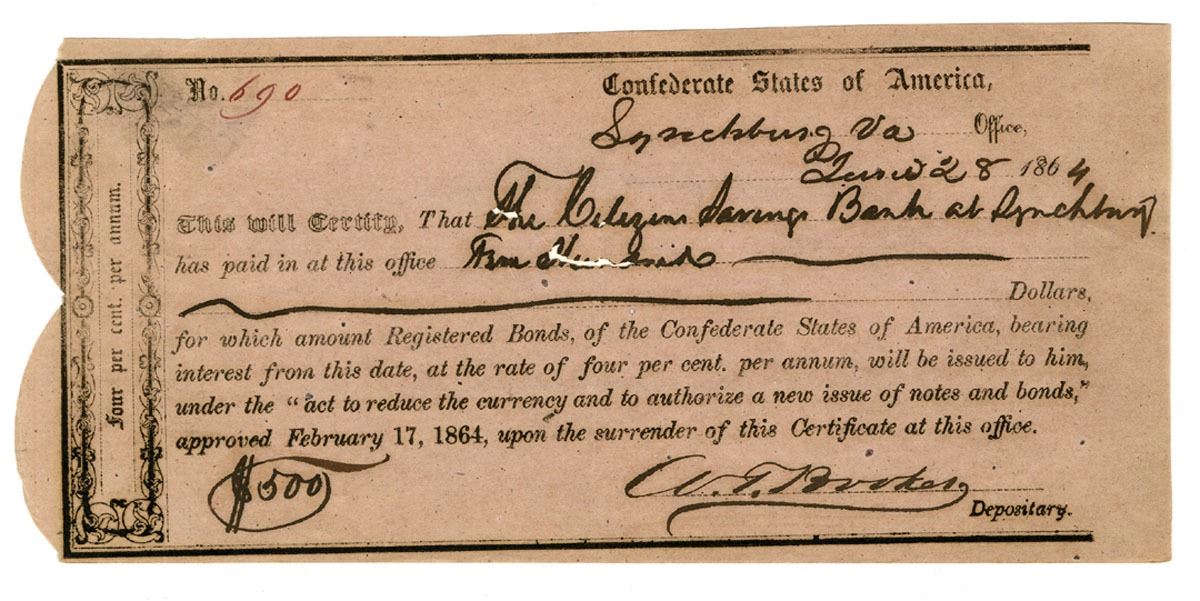 No. 690
Confederate States of America,
Lynchburg Va Office,
June 28 1864
This will Certify, That The Citizens Savings Bank at Lynchburg
has paid in at this office Five Hundred
Dollars,
for which amount Registered Bonds, of the Confederate States of America, bearing
interest from this date, at the rate of four per cent. per annum, will be issued to him,
under the "act to reduce the currency and to authorize a new issue of notes and bonds,"
approved February 17, 1864, upon the surrender of this Certificate at this office.
$500
W. T. Booker
Depositary.
Four per cent. per annum.